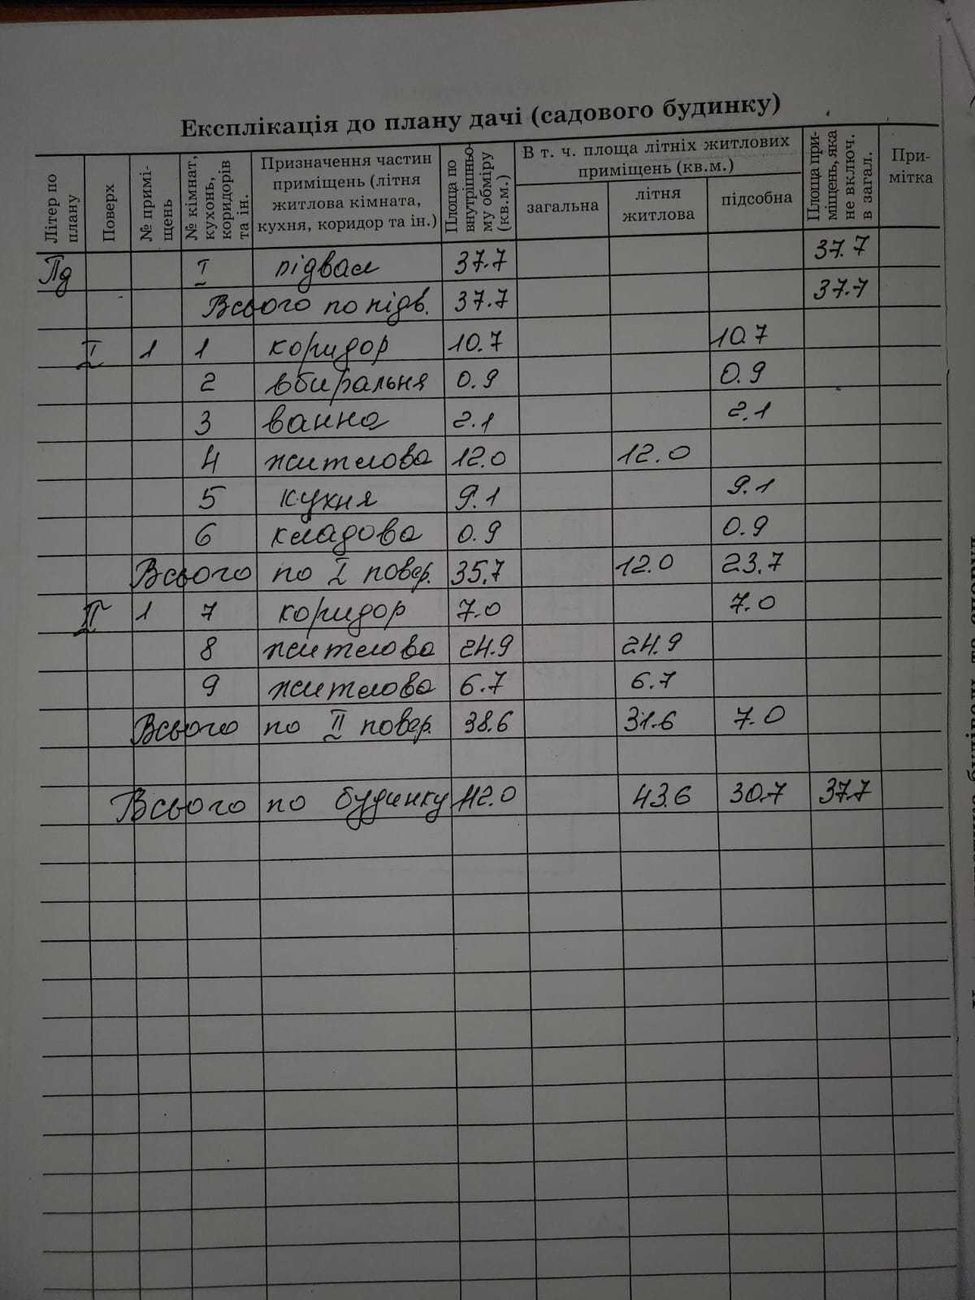 Експлікація до плану дачі (садового будинку)
Літер по плану Поверх № приміщень № кімнат, кухонь, коридорів та ін. Призначення частин приміщень (літня житлова кімната, кухня, коридор та ін.) Площа по внутрішньому обміру (кв.м.) В т. ч. площа літніх житлових приміщень (кв.м.) загальна літня житлова підсобна Площа приміщень, яка не включ. в загал. Примітка
Пд I підвал 37.7 37.7
Всього по підв. 37.7 37.7
I 1 1 коридор 10.7 10.7
2 вбиральня 0.9 0.9
3 ванна 2.1 2.1
4 житлова 12.0 12.0
5 кухня 9.1 9.1
6 кладова 0.9 0.9
Всього по I повер. 35,7 12.0 23,7
II 1 7 коридор 7.0 7.0
8 житлова 24.9 24.9
9 житлова 6.7 6.7
Всього по II повер. 38.6 31.6 7.0
Всього по будинку 112.0 43.6 30.7 37.7